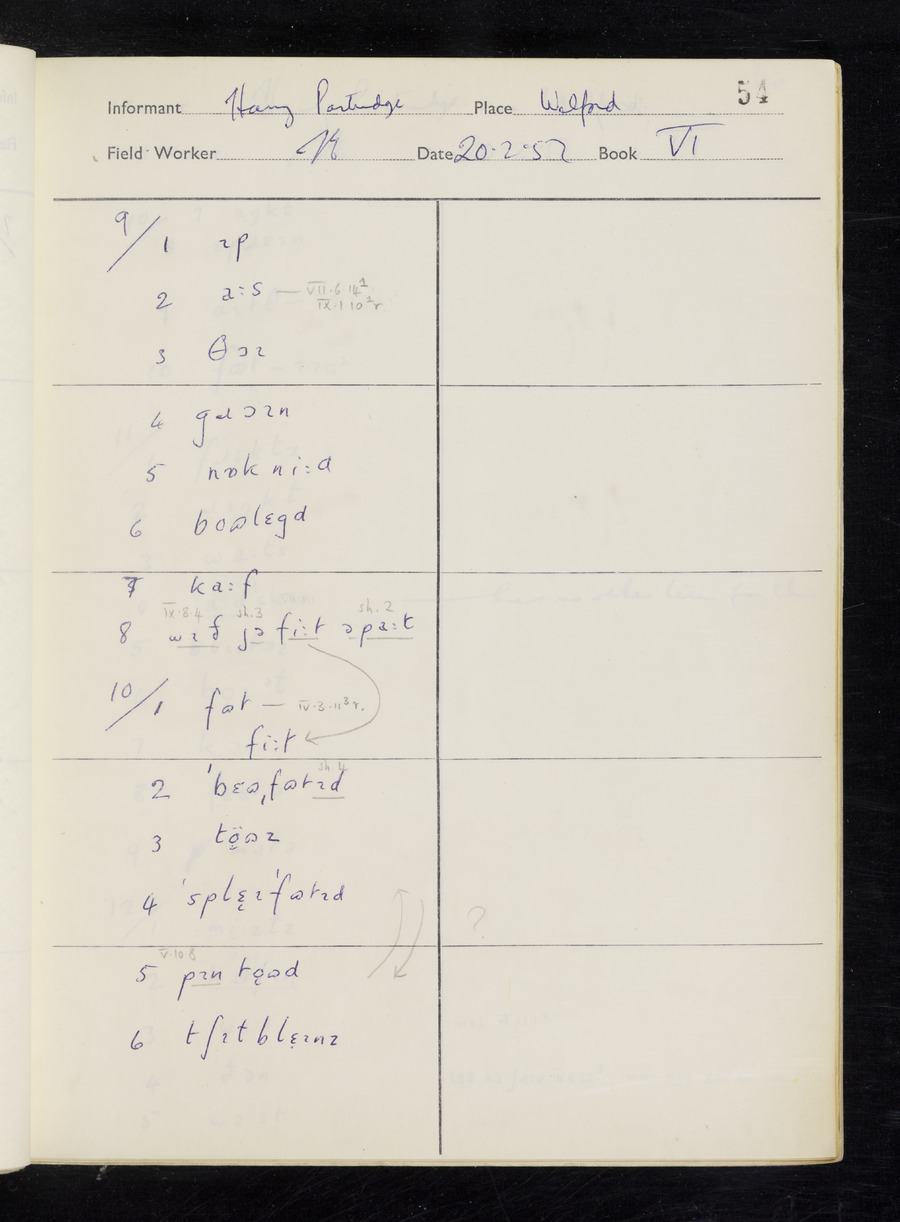 54
Informant Harry Partridge Place Walford
Field Worker Date 20·2·57 Book VI
9/1 ɪp
2 a:s — VII·6·14¹
IX·1·10²r.
3 θɔɪ
4 gɑɔɪn
5 nɒk ni:d
6 bɒʊlɛgd
7 ka:f
IX·8·4 sh.3 sh.2
8 wɪð jə fi:t əpa:t
10/1 fʊt — IV·3·11³r.
fi:t
sh.4
2 ˈbɛəˌfʊtɪd
3 to̤ʊz
4 ˈsplɛ̜ɪˈfʊtɪd
?
V·10·8
5 pɪn to̜ʊd
6 tʃɪtblɛ̜ɪnz